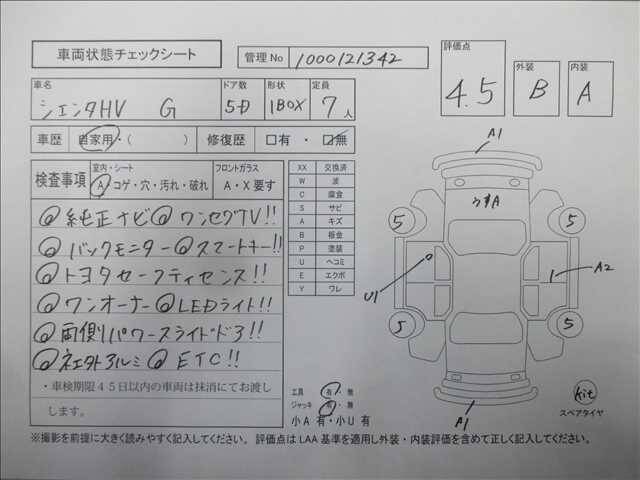 車両状態チェックシート
管理No 1000121342
評価点 4.5
外装 B
内装 A
車名 シエンタHV G
ドア数 5D
形状 1BOX
定員 7人
車歴 自家用・( )
修復歴 □有・□無
検査事項
室内・シート
A コゲ・穴・汚れ・破れ
フロントガラス
A・X要す
◎純正ナビ◎ワンセグTV!!
◎バックモニター◎スマートキー!!
◎トヨタセーフティセンス!!
◎ワンオーナー◎LEDライト!!
◎両側パワースライドドア!!
◎社外アルミ◎ETC!!
・車検期限45日以内の車両は抹消にてお渡し
します。
XX 交換済
W 波
C 腐食
S サビ
A キズ
B 板金
P 塗装
U ヘコミ
E エクボ
Y ワレ
A1
うすA
5
5
U1
A2
5
5
A1
工具 有・無
ジャッキ 有・無
小A 有・小U 有
kit
スペアタイヤ
※撮影を前提に大きく読みやすく記入してください。 評価点はLAA基準を適用し外装・内装評価を含めて正しく記入してください。